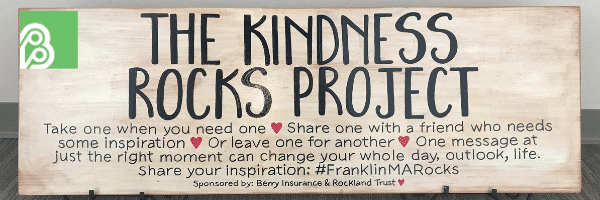 THE KINDNESS
ROCKS PROJECT
Take one when you need one ♥ Share one with a friend who needs
some inspiration ♥ Or leave one for another ♥ One message at
just the right moment can change your whole day, outlook, life.
Share your inspiration: #FranklinMARocks
Sponsored by: Berry Insurance & Rockland Trust ♥